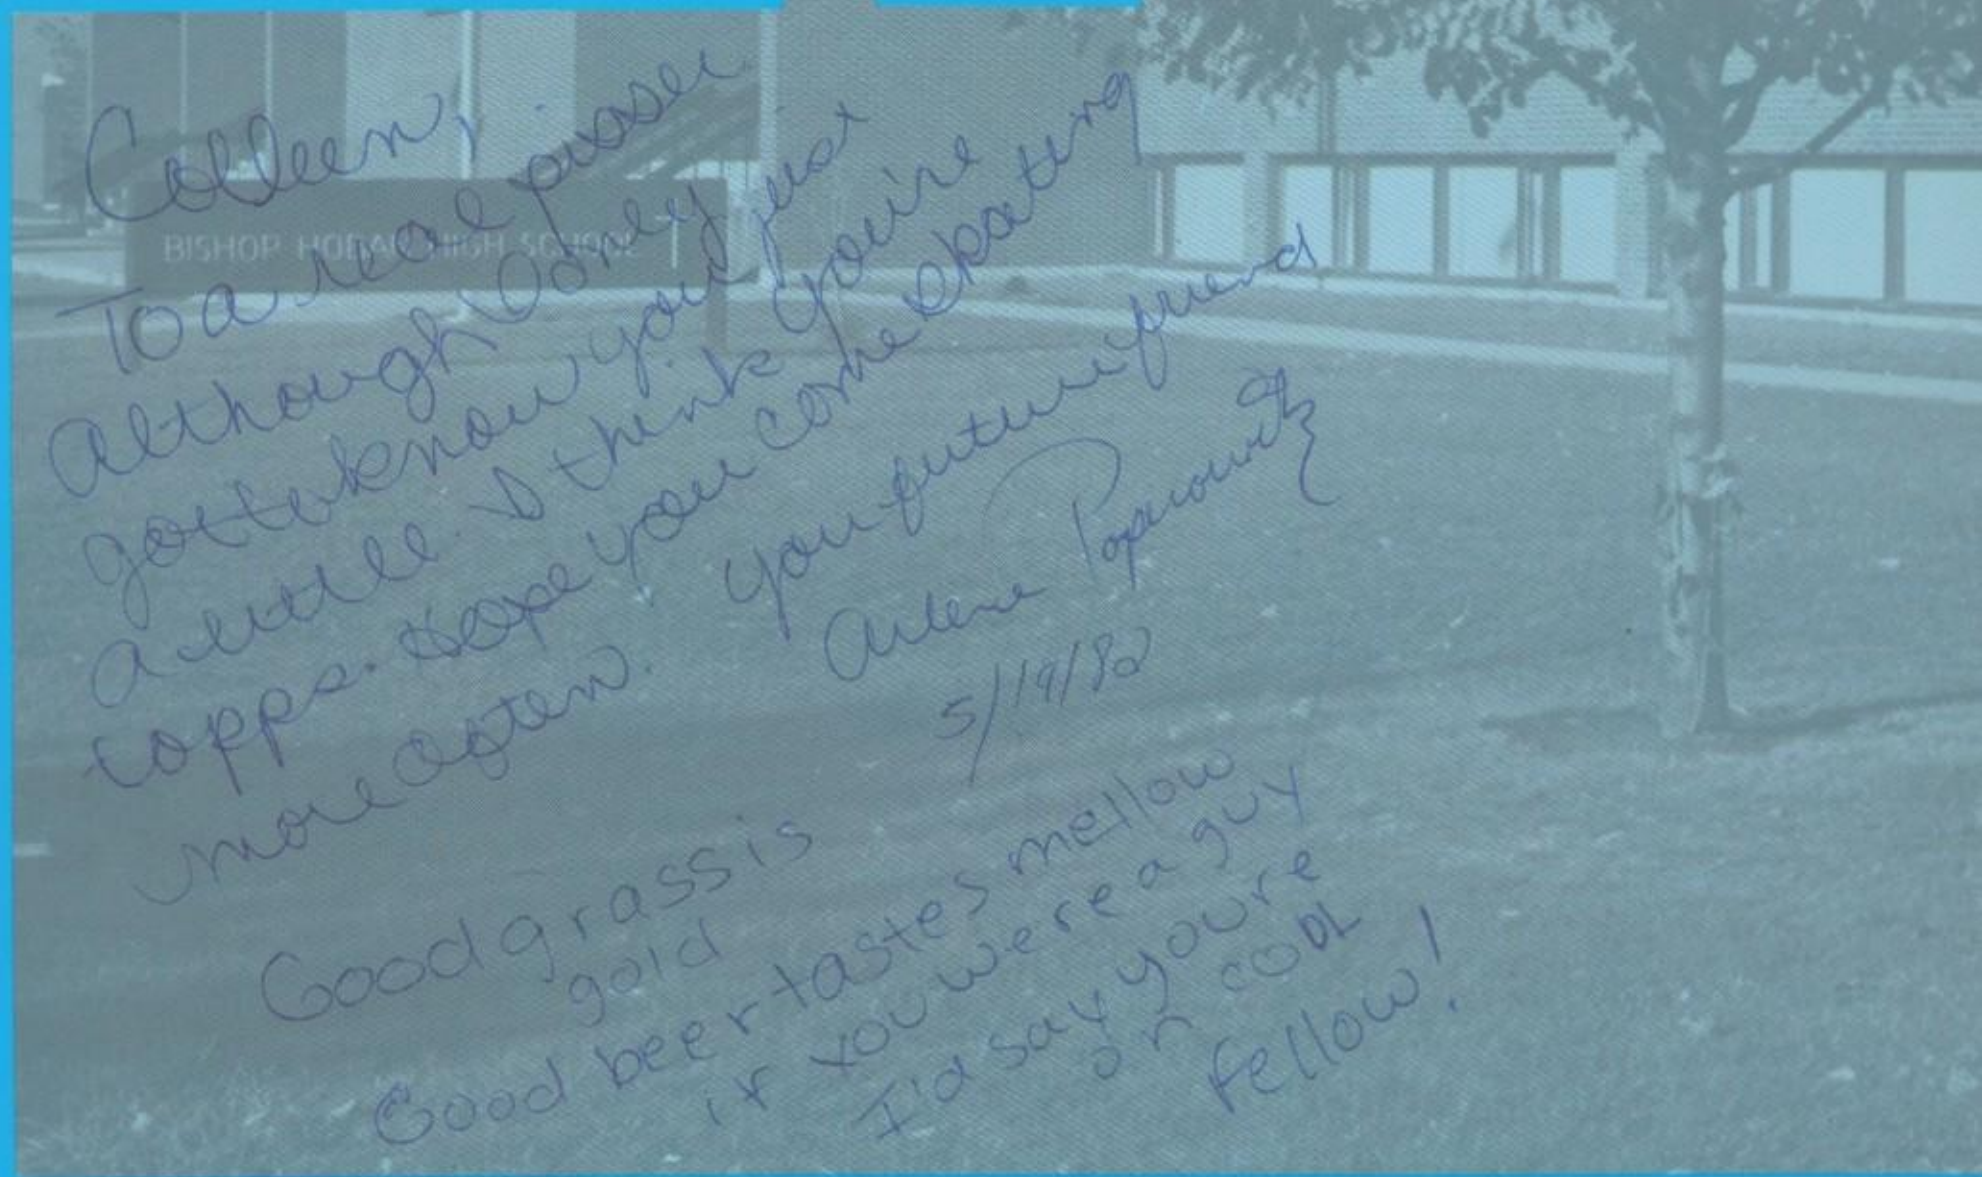 BISHOP HOBAN HIGH SCHOOL
Colleen,
To a real
Although I only just
got to know you
a little. I think you're
topps. Hope you come skating
more often. your future friend
Arlene
5/19/82
Good grass is
gold
Good beer tastes mellow
if you were a guy
I'd say you're
on cool
Fellow!